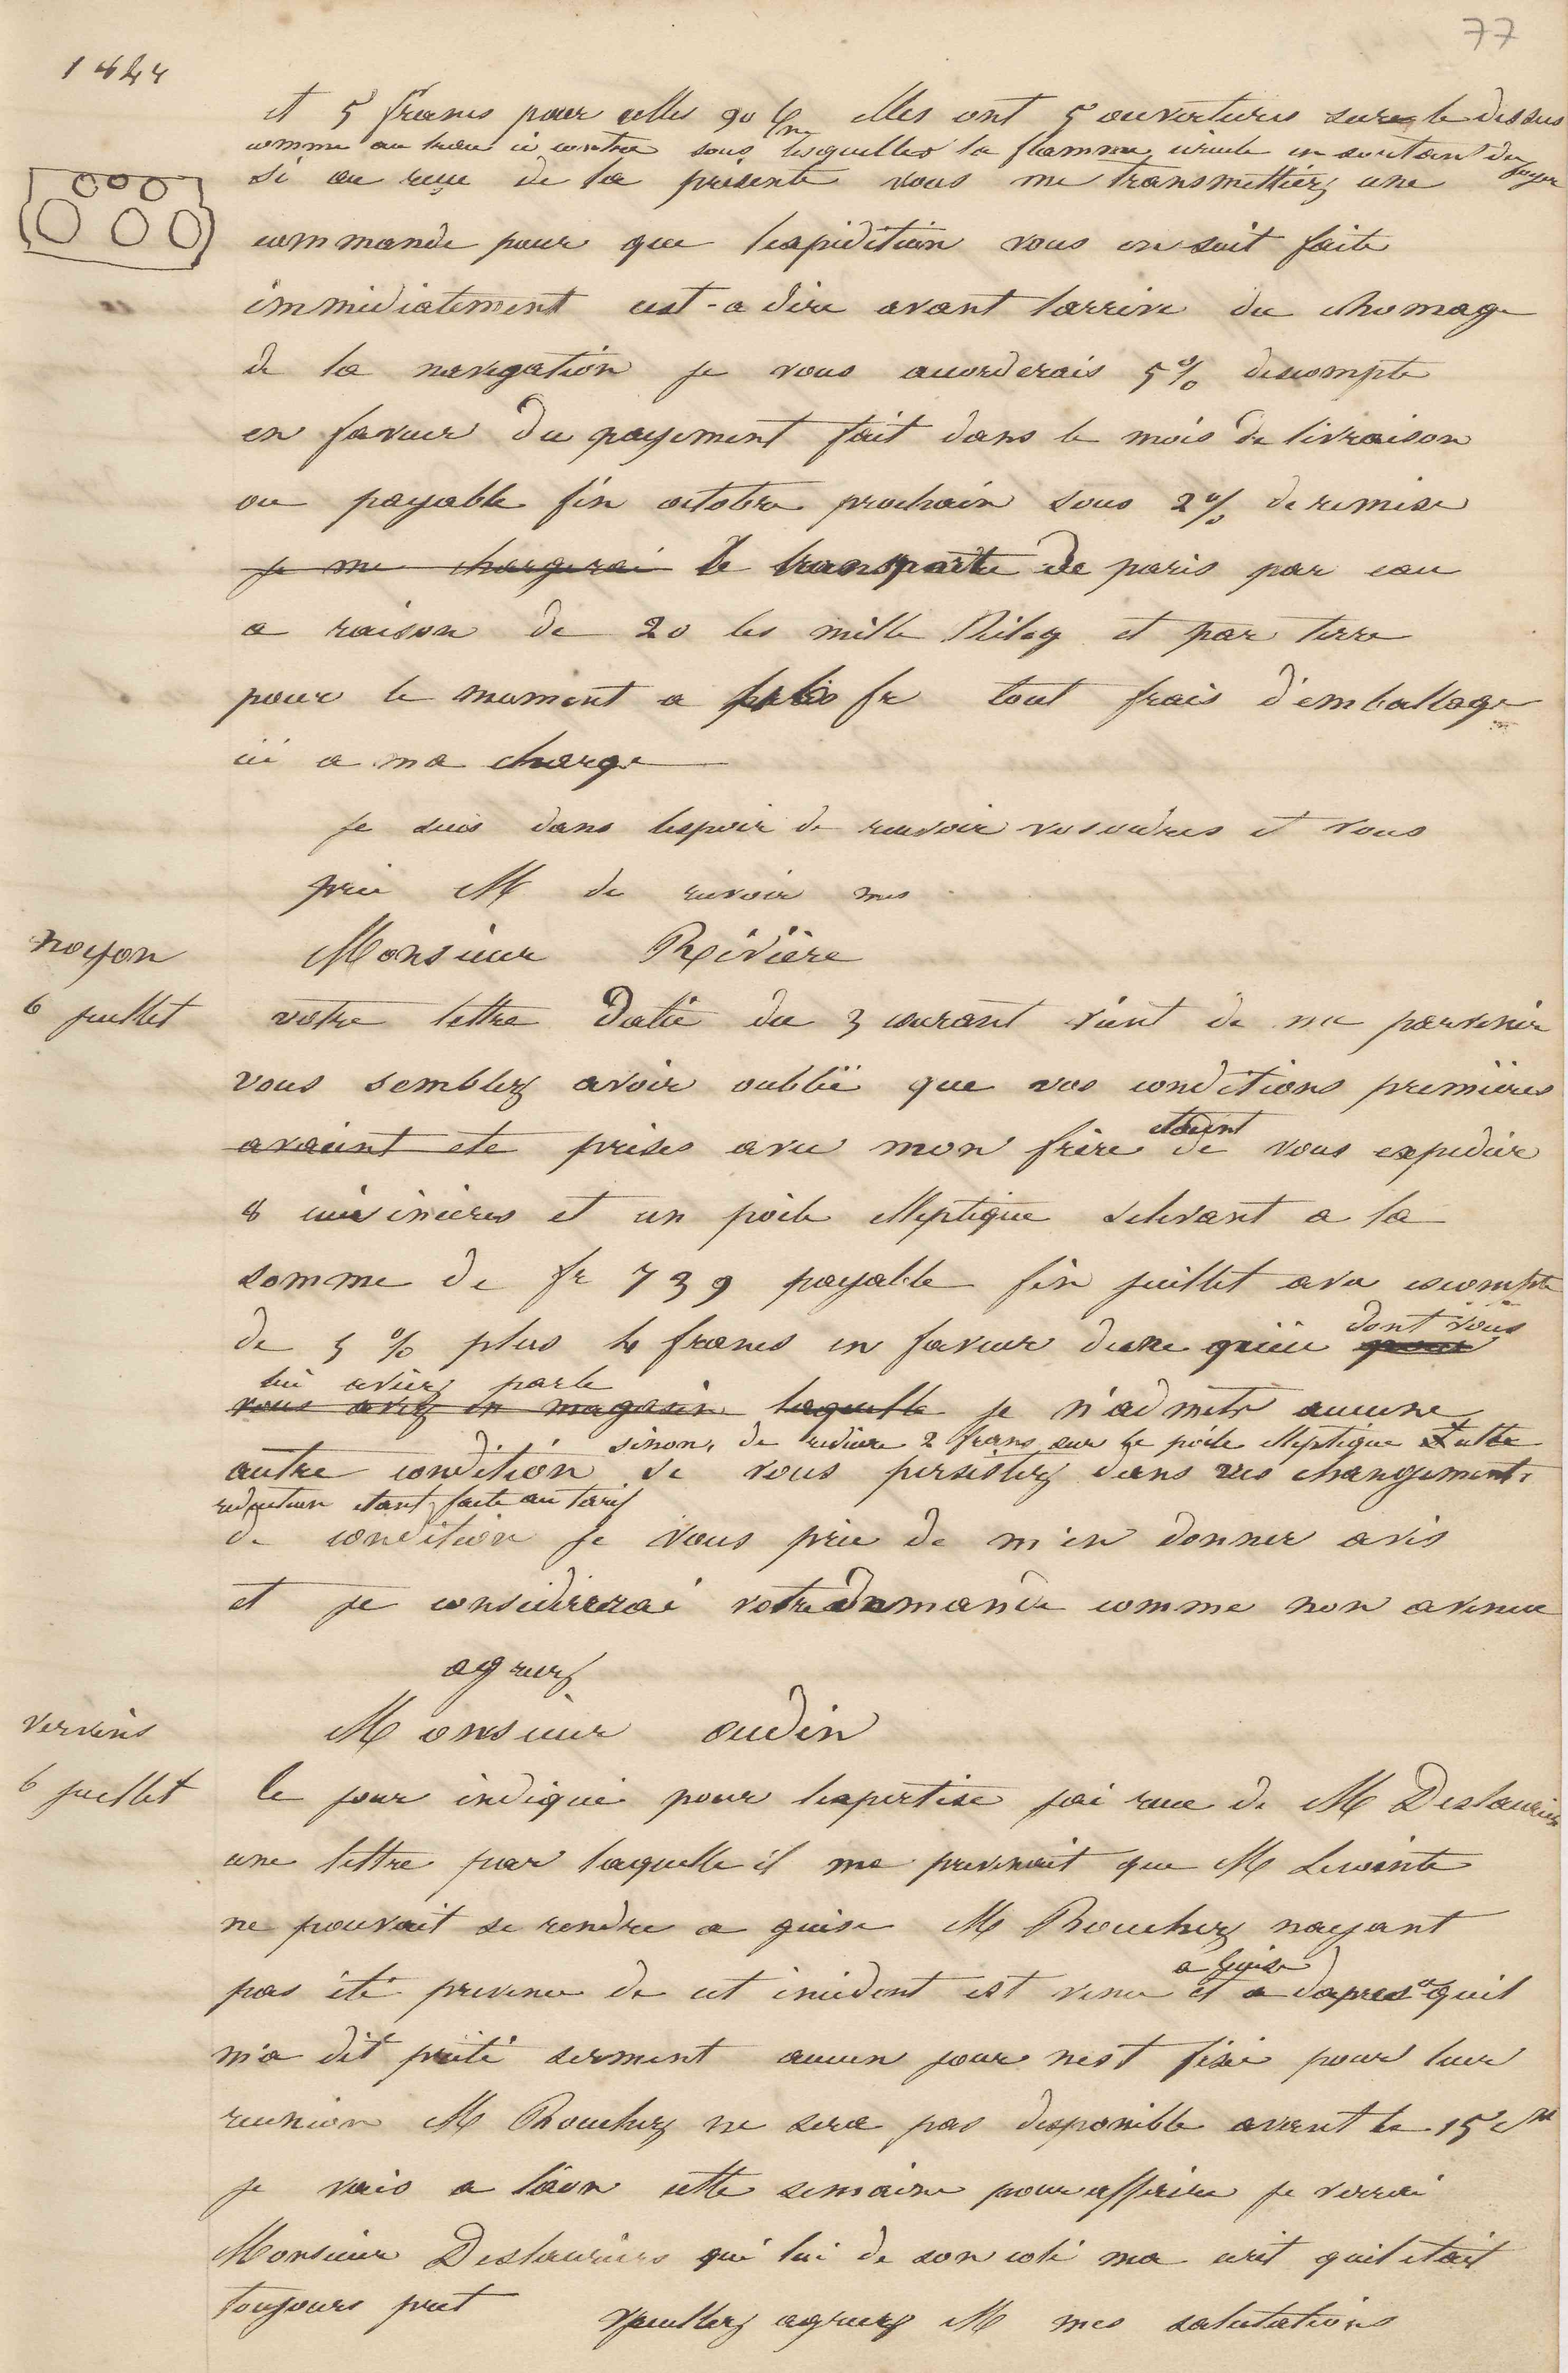 77
1844
et 5 francs pour celles 90 c/m elles ont 5 ouvertures sur le dessus
comme au tracé ci contre sous lesquelles la flamme circule en sortant du foyer
si au reçu de la presente vous me transmettiez une
commande pour que lexpidition vous en soit faite
immidiatement cest-a dire avant larrive du chomage
de la navigation je vous acorderais 5% descompte
en faveur du payement fait dans le mois de livraison
ou payable fin octobre prochain sous 2% de remise
je me chargerai le transporte de paris par eau
a raison de 20 les mille Kilog et par terre
pour le moment a fr tout frais d'emballage
ici a ma charge
je suis dans lespoir de recevoir vos ordres et vous
prie M de recevoir mes
noyon
Monsieur Rivière
6 juillet
votre lettre datée du 3 courant vient de me parvenir
vous semblez avoir oublié que vos conditions premières
etaient
avaient ete prises avec mon frère de vous expedier
8 cuisinieres et un poële elleptique selevant a la
somme de fr 739 payable fin juillet avec escompte
dont vous
de 5 % plus 4 francs en faveur dune pièce pour
lui aviez parlé
vous avez en magasin laquelle je n'admets aucune
sinon de reduire 2 francs sur le poële elleptique cette
autre condition si vous persistez dans vos changements
reduction etant faite au tarif
de condition je vous prie de m'en donner avis
et je considirerai votre demande comme non avenue
agreez
vervins
Monsieur oudin
6 juillet
le jour indiqué pour lexpertise jai recu de M Deslauriers
une lettre par laquelle il me prevenait que M Lecointe
ne pouvait se rendre a guise M Bouchez nayant
a guise
pas été prevenu de cet incident est venu et a dapres ce quil
m'a dit prêté serment aucun jour nest fixé pour leur
reunion M Bouchez ne sera pas disponible avant le 15 ct
je vais a laon cette semaine pour affaire je verrai
Monsieur Deslauriers qui lui de son coté ma ecrit quil etait
toujours pret
veuillez agreez M mes salutations